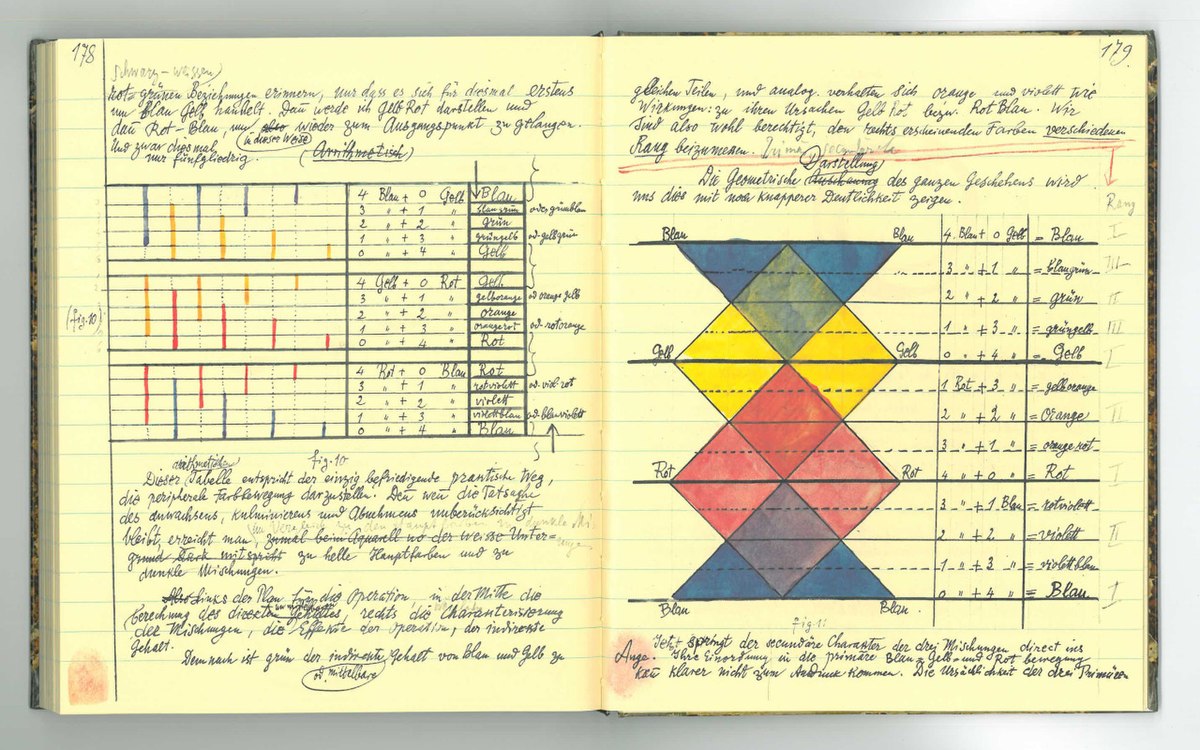 178
schwarz-weissen
rot-grünen Beziehungen erinnern, nur dass es sich für diesmal erstens
um Blau Gelb handelt. Dan werde ich Gelb Rot darstellen und
dan Rot-Blau, um also wieder zum Ausgangspunkt zu gelangen.
in dieser Weise
Und zwar diesmal
nur fünfgliedrig. (Arrithmetisch)
4 Blau + 0 Gelb Blau
3 " + 1 " blaugrün oder grünblau
2 " + 2 " grün
1 " + 3 " grüngelb od. gelbgrün
0 " + 4 " Gelb
(fig. 10)
4 Gelb + 0 Rot Gelb
3 " + 1 " gelborange od orangegelb
2 " + 2 " orange
1 " + 3 " orangerot od. rotorange
0 " + 4 " Rot
4 Rot + 0 Blau Rot
3 " + 1 " rotviolett od. viol. rot
2 " + 2 " violett
1 " + 3 " violettblau od. blauviolett
0 " + 4 " Blau
fig. 10
arithmetische
Dieser Tabelle entspricht der einzig befriedigende praktische Weg,
die peripherale Farbbewegung darzustellen. Den wen die Tatsache
des anwachsens, kulminierens und Abnehmens unberücksichtigt
im Vergleich zu den Hauptfarben zu dunkle Mi
bleibt, erreicht man zumal beim Aquarell wo der weisse Unter=
grund stark mitspricht zu helle Hauptfarben und zu
dunkle Mischungen.
Also Links der Plan für die Operation in der Mitte die
berechnung des direkten Gehaltes, rechts die Charakterisierung
der Mischungen, die Effekte der Operation, der indirekte
Gehalt.
Demnach ist grün der indirekte Gehalt von Blau und Gelb zu
od. mittelbare
179
gleichen Teilen, und analog verhalten sich orange und violett wie
Wirkungen: zu ihren Ursachen Gelb Rot bezw. Rot Blau. Wir
sind also wohl berechtigt, den rechts erscheinenden Farben verschiedenen
Rang beizumessen.
Darstellung
Die Geometrische des ganzen Geschehens wird
uns dies mit noch knapperer Deutlichkeit zeigen.
Rang
Blau Blau 4 Blau + 0 Gelb = Blau I
3 " + 1 " = blaugrün III
2 " + 2 " = grün II
1 " + 3 " = grüngelb III
Gelb Gelb 0 " + 4 " = Gelb I
1 Rot + 3 " = gelborange
2 " + 2 " = Orange II
3 " + 1 " = orangerot
Rot Rot 4 " + 0 " = Rot I
3 " + 1 Blau = rotviolett
2 " + 2 " = violett II
1 " + 3 " = violettblau
Blau Blau 0 " + 4 " = Blau I
fig. 11
Jetzt springt der secundäre Charakter der drei Mischungen direct ins
Auge. Ihre Einordnung in die primäre Blau = Gelb = und Rot bewegung
kan klarer nicht zum Ausdruck kommen. Die Ursächlichkeit der drei Primären